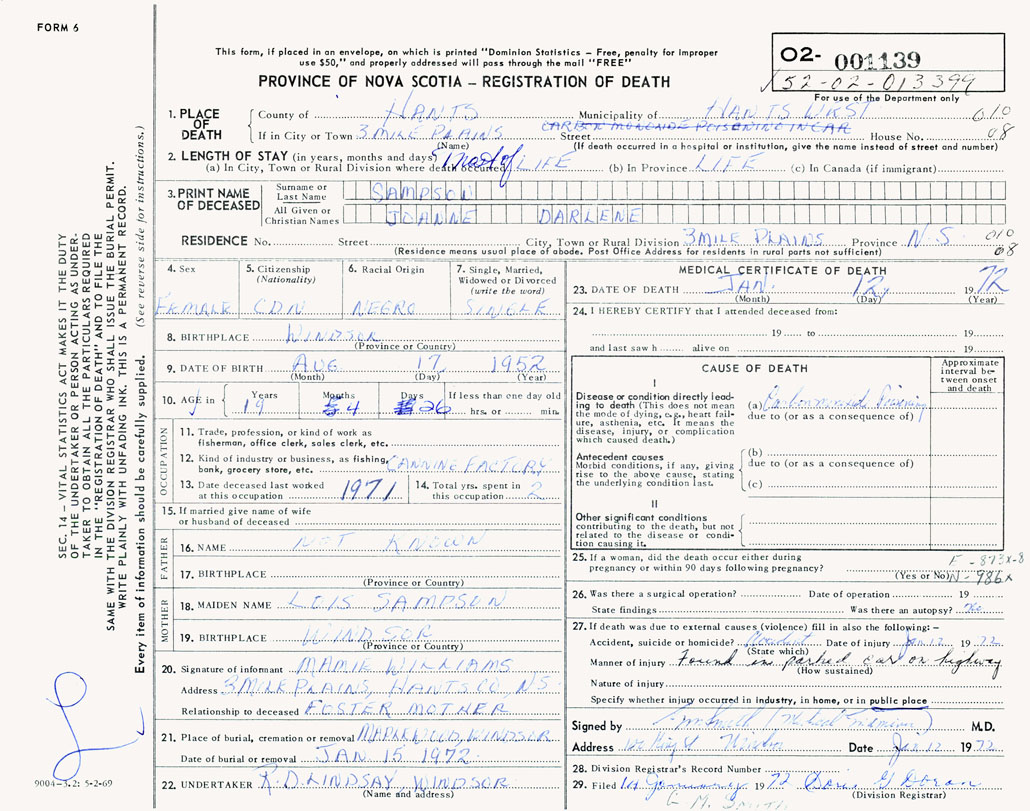 FORM 6
This form, if placed in an envelope, on which is printed "Dominion Statistics – Free, penalty for improper
use $50," and properly addressed will pass through the mail "FREE"
PROVINCE OF NOVA SCOTIA – REGISTRATION OF DEATH
O2- 001139
52-02-013399
For use of the Department only
1. PLACE OF DEATH
County of HANTS Municipality of HANTS WEST 010
If in City or Town 3 MILE PLAINS Street CARBON MONOXIDE POISENING IN CAR House No. 08
(Name) (If death occurred in a hospital or institution, give the name instead of street and number)
2. LENGTH OF STAY (in years, months and days)
(a) In City, Town or Rural Division where death occurred Most of LIFE (b) In Province LIFE (c) In Canada (if immigrant)
3. PRINT NAME OF DECEASED
Surname or Last Name SAMPSON
All Given or Christian Names JOANNE DARLENE
RESIDENCE No. Street City, Town or Rural Division 3 MILE PLAINS Province N.S. 010
(Residence means usual place of abode. Post Office Address for residents in rural parts not sufficient) 08
4. Sex FEMALE
5. Citizenship (Nationality) CDN
6. Racial Origin NEGRO
7. Single, Married, Widowed or Divorced (write the word) SINGLE
8. BIRTHPLACE WINDSOR
(Province or Country)
9. DATE OF BIRTH AUG 17 1952
(Month) (Day) (Year)
10. AGE in Years 19 Months 4 Days 26 If less than one day old
hrs. or min.
OCCUPATION
11. Trade, profession, or kind of work as
fisherman, office clerk, sales clerk, etc.
12. Kind of industry or business, as fishing,
bank, grocery store, etc. CANNING FACTORY
13. Date deceased last worked
at this occupation 1971
14. Total yrs. spent in
this occupation 2
15. If married give name of wife
or husband of deceased
FATHER
16. NAME NOT KNOWN
17. BIRTHPLACE
(Province or Country)
MOTHER
18. MAIDEN NAME LOIS SAMPSON
19. BIRTHPLACE WINDSOR
(Province or Country)
20. Signature of informant MAMIE WILLIAMS
Address 3 MILE PLAINS, HANTS CO, N.S.
Relationship to deceased FOSTER MOTHER
21. Place of burial, cremation or removal MAPLEWOOD, WINDSOR
Date of burial or removal JAN 15 1972
22. UNDERTAKER R.D. LINDSAY, WINDSOR
(Name and address)
MEDICAL CERTIFICATE OF DEATH
23. DATE OF DEATH JAN. 12 1972
(Month) (Day) (Year)
24. I HEREBY CERTIFY that I attended deceased from:
19 to 19
and last saw h alive on 19
CAUSE OF DEATH
Approximate interval between onset and death
I
Disease or condition directly leading to death (This does not mean the mode of dying, e.g., heart failure, asthenia, etc. It means the disease, injury, or complication which caused death.)
(a) Poisoning
due to (or as a consequence of)
Antecedent causes
Morbid conditions, if any, giving rise to the above cause, stating the underlying condition last.
(b)
due to (or as a consequence of)
(c)
II
Other significant conditions
contributing to the death, but not related to the disease or condition causing it.
25. If a woman, did the death occur either during
pregnancy or within 90 days following pregnancy?
(Yes or No)
E - 873X-8
N - 986X
26. Was there a surgical operation? Date of operation 19
State findings Was there an autopsy? No
27. If death was due to external causes (violence) fill in also the following: –
Accident, suicide or homicide? Accident Date of injury Jan 12 1972
(State which)
Manner of injury Found in parked car on highway
(How sustained)
Nature of injury
Specify whether injury occurred in industry, in home, or in public place
Signed by (Medical Examiner) M.D.
Address Windsor Date Jan 12 1972
28. Division Registrar's Record Number
29. Filed 1972
(Division Registrar)
G. M. SMITH
SEC. 14 – VITAL STATISTICS ACT MAKES IT THE DUTY
OF THE UNDERTAKER OR PERSON ACTING AS UNDER-
TAKER TO OBTAIN ALL THE PARTICULARS REQUIRED
IN THE "REGISTRATION OF DEATH" AND TO FILE THE
SAME WITH THE DIVISION REGISTRAR WHO SHALL ISSUE THE BURIAL PERMIT.
WRITE PLAINLY WITH UNFADING INK. THIS IS A PERMANENT RECORD.
Every item of information should be carefully supplied. (See reverse side for instructions.)
9004-3.2: 5-2-69